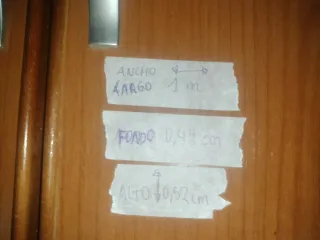 ANCHO
LARGO 1 m
FONDO 0,49 cm
ALTO 0,82 cm